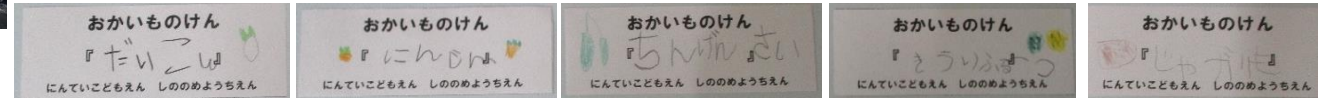 おかいものけん
『だいこん』
にんていこどもえん しののめようちえん
おかいものけん
『にんじん』
にんていこどもえん しののめようちえん
おかいものけん
『ちんげんさい』
にんていこどもえん しののめようちえん
おかいものけん
『きゅうり
にんていこどもえん しののめようちえん
おかいものけん
『じゃがいも』
にんていこどもえん しののめようちえん